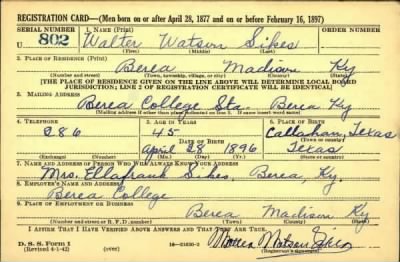 REGISTRATION CARD—(Men born on or after April 28, 1877 and on or before February 16, 1897)
SERIAL NUMBER 1. NAME (Print) ORDER NUMBER
U 802 Walter Watson Sikes
(First) (Middle) (Last)
2. PLACE OF RESIDENCE (Print)
Berea Madison Ky
(Number and street) (Town, township, village, or city) (County) (State)
[THE PLACE OF RESIDENCE GIVEN ON THE LINE ABOVE WILL DETERMINE LOCAL BOARD
JURISDICTION; LINE 2 OF REGISTRATION CERTIFICATE WILL BE IDENTICAL]
3. MAILING ADDRESS
Berea College Sta. Berea Ky
[Mailing address if other than place indicated on line 2. If same insert word same]
4. TELEPHONE 5. AGE IN YEARS 6. PLACE OF BIRTH
286 45 Callahan, Texas
DATE OF BIRTH (Town or county)
April 28 1896 Texas
(Exchange) (Number) (Mo.) (Day) (Yr.) (State or country)
7. NAME AND ADDRESS OF PERSON WHO WILL ALWAYS KNOW YOUR ADDRESS
Mrs. Ellafrank Sikes, Berea, Ky.
8. EMPLOYER'S NAME AND ADDRESS
Berea College
9. PLACE OF EMPLOYMENT OR BUSINESS
Berea Madison Ky
(Number and street or R. F. D. number) (Town) (County) (State)
I AFFIRM THAT I HAVE VERIFIED ABOVE ANSWERS AND THAT THEY ARE TRUE.
D. S. S. Form 1
(Revised 4-1-42) (over) Walter Watson Sikes
(Registrant's signature)